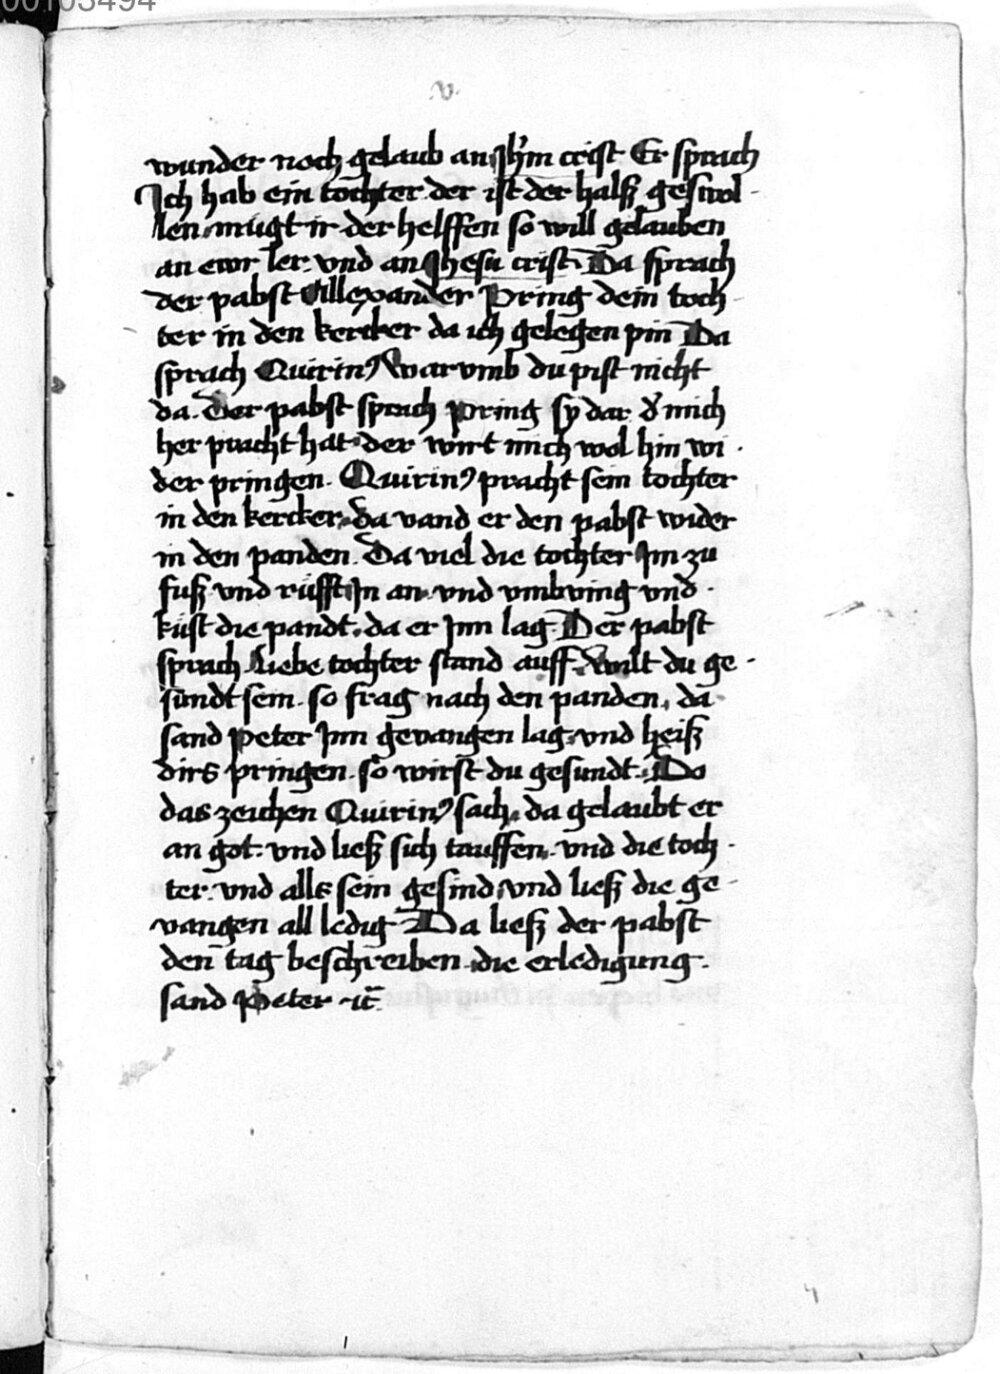 00103494
v
wunder noch gelaub an Jhm̄ crist Er sprach
Ich hab ein tochter der ist der halß geswol
len mugt ir der helffen so will gelauben
an ewr ler. vnd an Jhesu crist. Da sprach
der pabst Allexander Pring dein toch
ter in den kercker da ich gelegen pin Da
sprach Quirinꝰ Warvmb du pist nicht
da. Der pabst sprach pring sy dar. d' mich
her pracht hat der wirt mich wol hin wi
der pringen. Quirinꝰ pracht sein tochter
in den kercker. da vand er den pabst wider
in den panden. Da viel die tochter Im zu
fuß vnd rüfft In an. vnd vmbving vnd
küst die pandt. da er Inn lag. Der pabst
sprach liebe tochter stand auff. Wilt du ge
sundt sein. so frag nach den panden. da
sand peter Inn gevangen lag. vnd heiß
dirs pringen. so wirst du gesundt. Do
das zeichen Quirinꝰ sach. da gelaubt er
an got. vnd ließ sich tauffen. vnd die toch
ter. vnd alls sein gesind. vnd ließ die ge
vangen all ledig Da ließ der pabst
den tag beschreiben. die erledigung.
sand Peter ⁊c̄
4